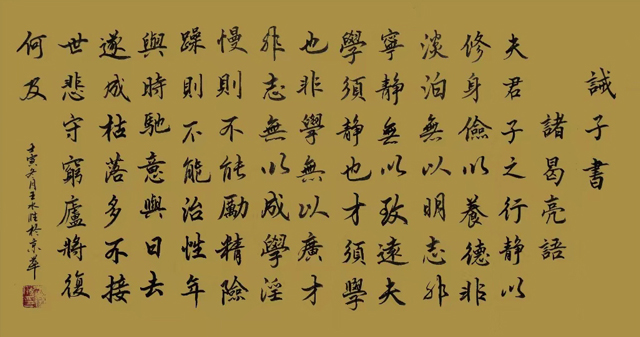 誡子書
諸曷亮語
夫君子之行静以
修身儉以養德非
淡泊無以明志非
寧静無以致遠夫
學須静也才須學
也非學無以廣才
非志無以成學淫
慢則不能勵精險
躁則不能治性年
與時馳意與日去
遂成枯落多不接
世悲守窮廬將復
何及
壬寅冬月王水胜於京華